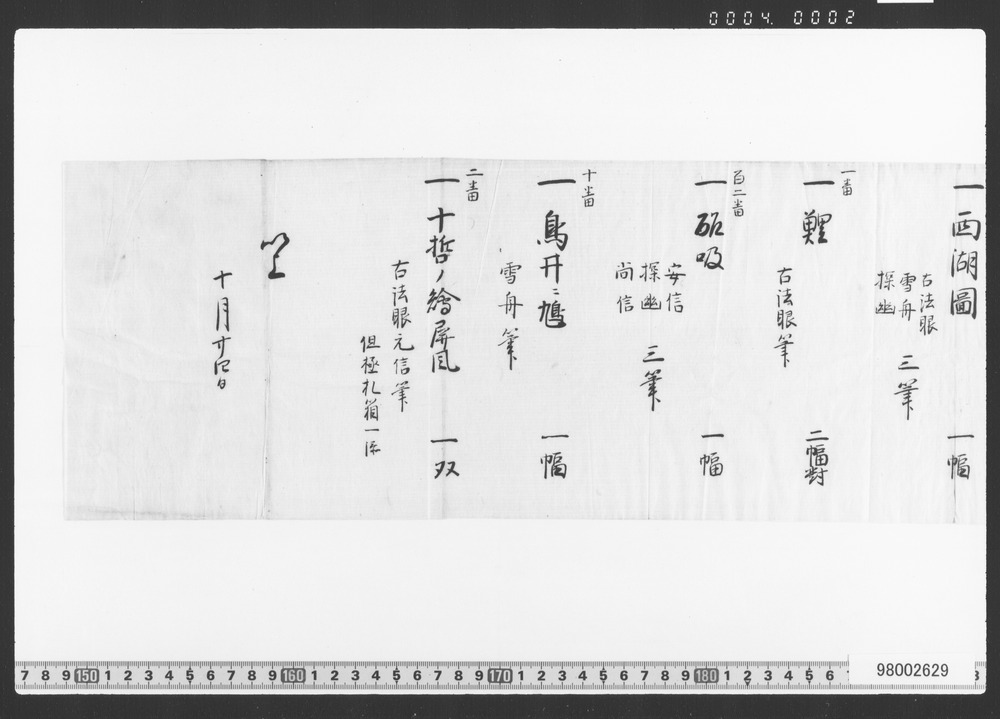 0004.0002
一 西湖圖 一幅
古法眼
雪舟 三筆
探幽
一番
一 鯉 二幅對
古法眼筆
百二番
一 硯吸 一幅
安信
探幽 三筆
尚信
十番
一 鳥井ニ鳩 一幅
雪舟筆
二番
一 十哲ノ繪屏風 一双
古法眼元信筆
但極札箱一
以上
十月廿四日
7 8 9 150 1 2 3 4 5 6 7 8 9 160 1 2 3 4 5 6 7 8 9 170 1 2 3 4 5 6 7 8 9 180 1 2 3 4 5 6
98002629
8